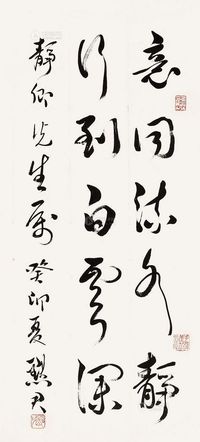 意同流水靜
行到白雲深
靜先生屬 癸卯夏 默君